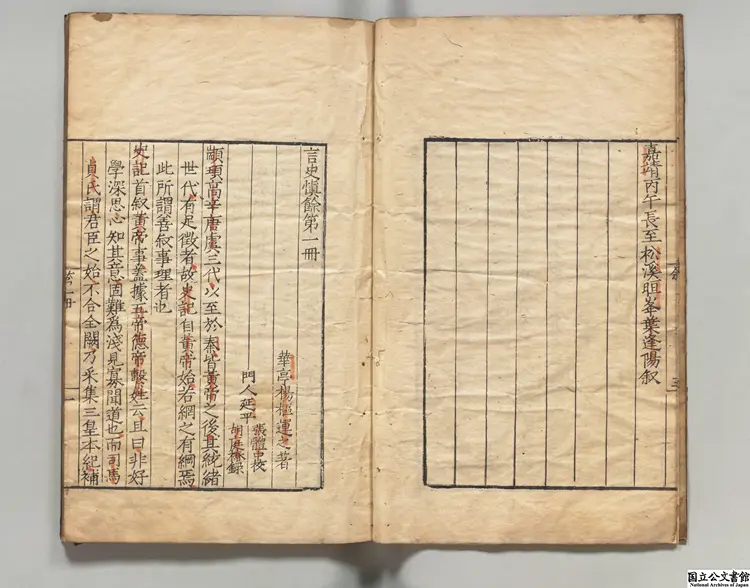 嘉靖丙午長至松溪旦峯葉逢陽叙
言史慎餘第一冊
華亭楊樞運之著
門人延平
張體中校
胡應祿錄
顓頊高辛唐虞三代以至於秦皆黃帝之後其統緒
世代有足徵者故史記自黃帝始若網之有綱焉
此所謂善叙事理者也
史記首叙黃帝事盖據五帝德帝繫姓云且曰非好
學深思心知其意固難為淺見寡聞道也而司馬
貞氏謂君臣之始不合全闕乃采集三皇本紀補
国立公文書館
National Archives of Japan